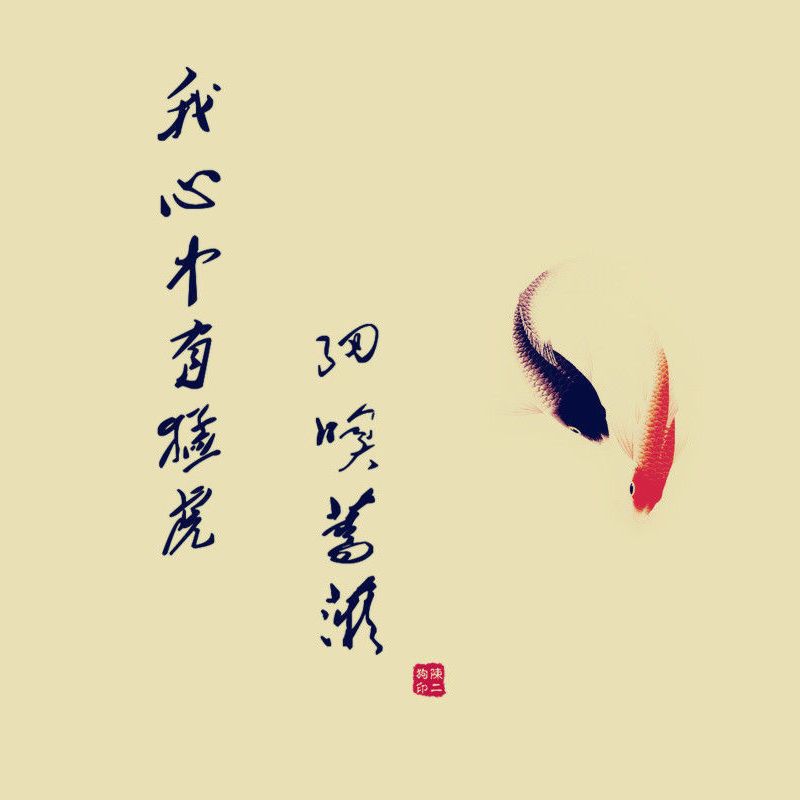 我心中有猛虎
细嗅蔷薇
陳二
狗印